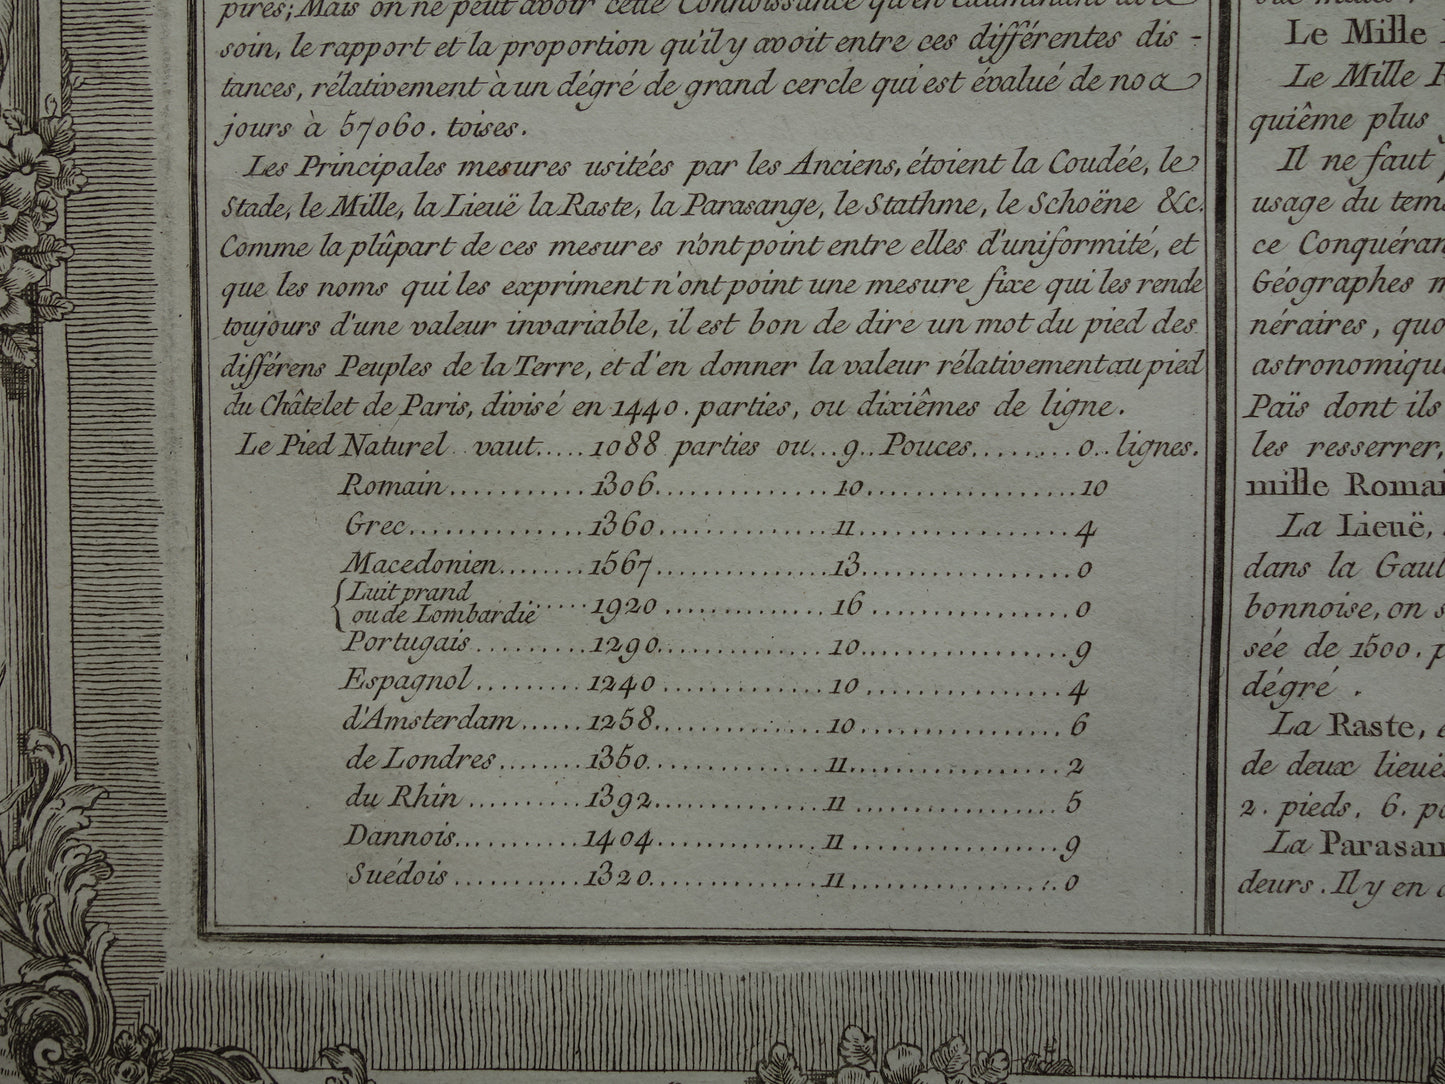 pires; Mais on ne peut avoir cette Connoissance qu'en
soin, le rapport et la proportion qu'il y avoit entre ces différentes dis-
tances, rélativement à un dégré de grand cercle qui est évalué de nos
jours à 57060. toises.
Les Principales mesures usitées par les Anciens, étoient la Coudée, le
Stade, le Mille, la Lieuë la Raste, la Parasange, le Stathme, le Schoëne &c.
Comme la plûpart de ces mesures n'ont point entre elles d'uniformité, et
que les noms qui les expriment n'ont point une mesure fixe qui les rende
toujours d'une valeur invariable, il est bon de dire un mot du pied des
différens Peuples de la Terre, et d'en donner la valeur rélativement au pied
du Châtelet de Paris, divisé en 1440. parties, ou dixiêmes de ligne.
Le Pied Naturel .. vaut..... 1088 parties ou... 9.. Pouces........ 0.. lignes.
Romain........... 1306............. 10.................. 10
Grec.............. 1360............. 11.................. 4
Macedonien........ 1567............. 13.................. 0
Luitprand
ou de Lombardie ..... 1920 ............. 16 .................. 0
Portugais .......... 1290............. 10.................. 9
Espagnol .......... 1240 ............. 10 .................. 4
d'Amsterdam...... 1258............. 10 .................. 6
de Londres........ 1350............. 11.................. 2
du Rhin .......... 1392............. 11 .................. 5
Dannois........... 1404............. 11 .................. 9
Suédois ........... 1320............. 11.................. 0
Le Mille
Le Mille
quiême plus
Il ne faut
usage du tem
ce Conquéran
Géographes
néraires, quo
astronomiqu
Païs dont ils
les resserrer,
mille Romai
La Lieuë,
dans la Gaul
bonnoise, on s
sée de 1500. p
dégré .
La Raste,
de deux lieuë
2. pieds, 6. po
La Parasan
deurs. Il y en a